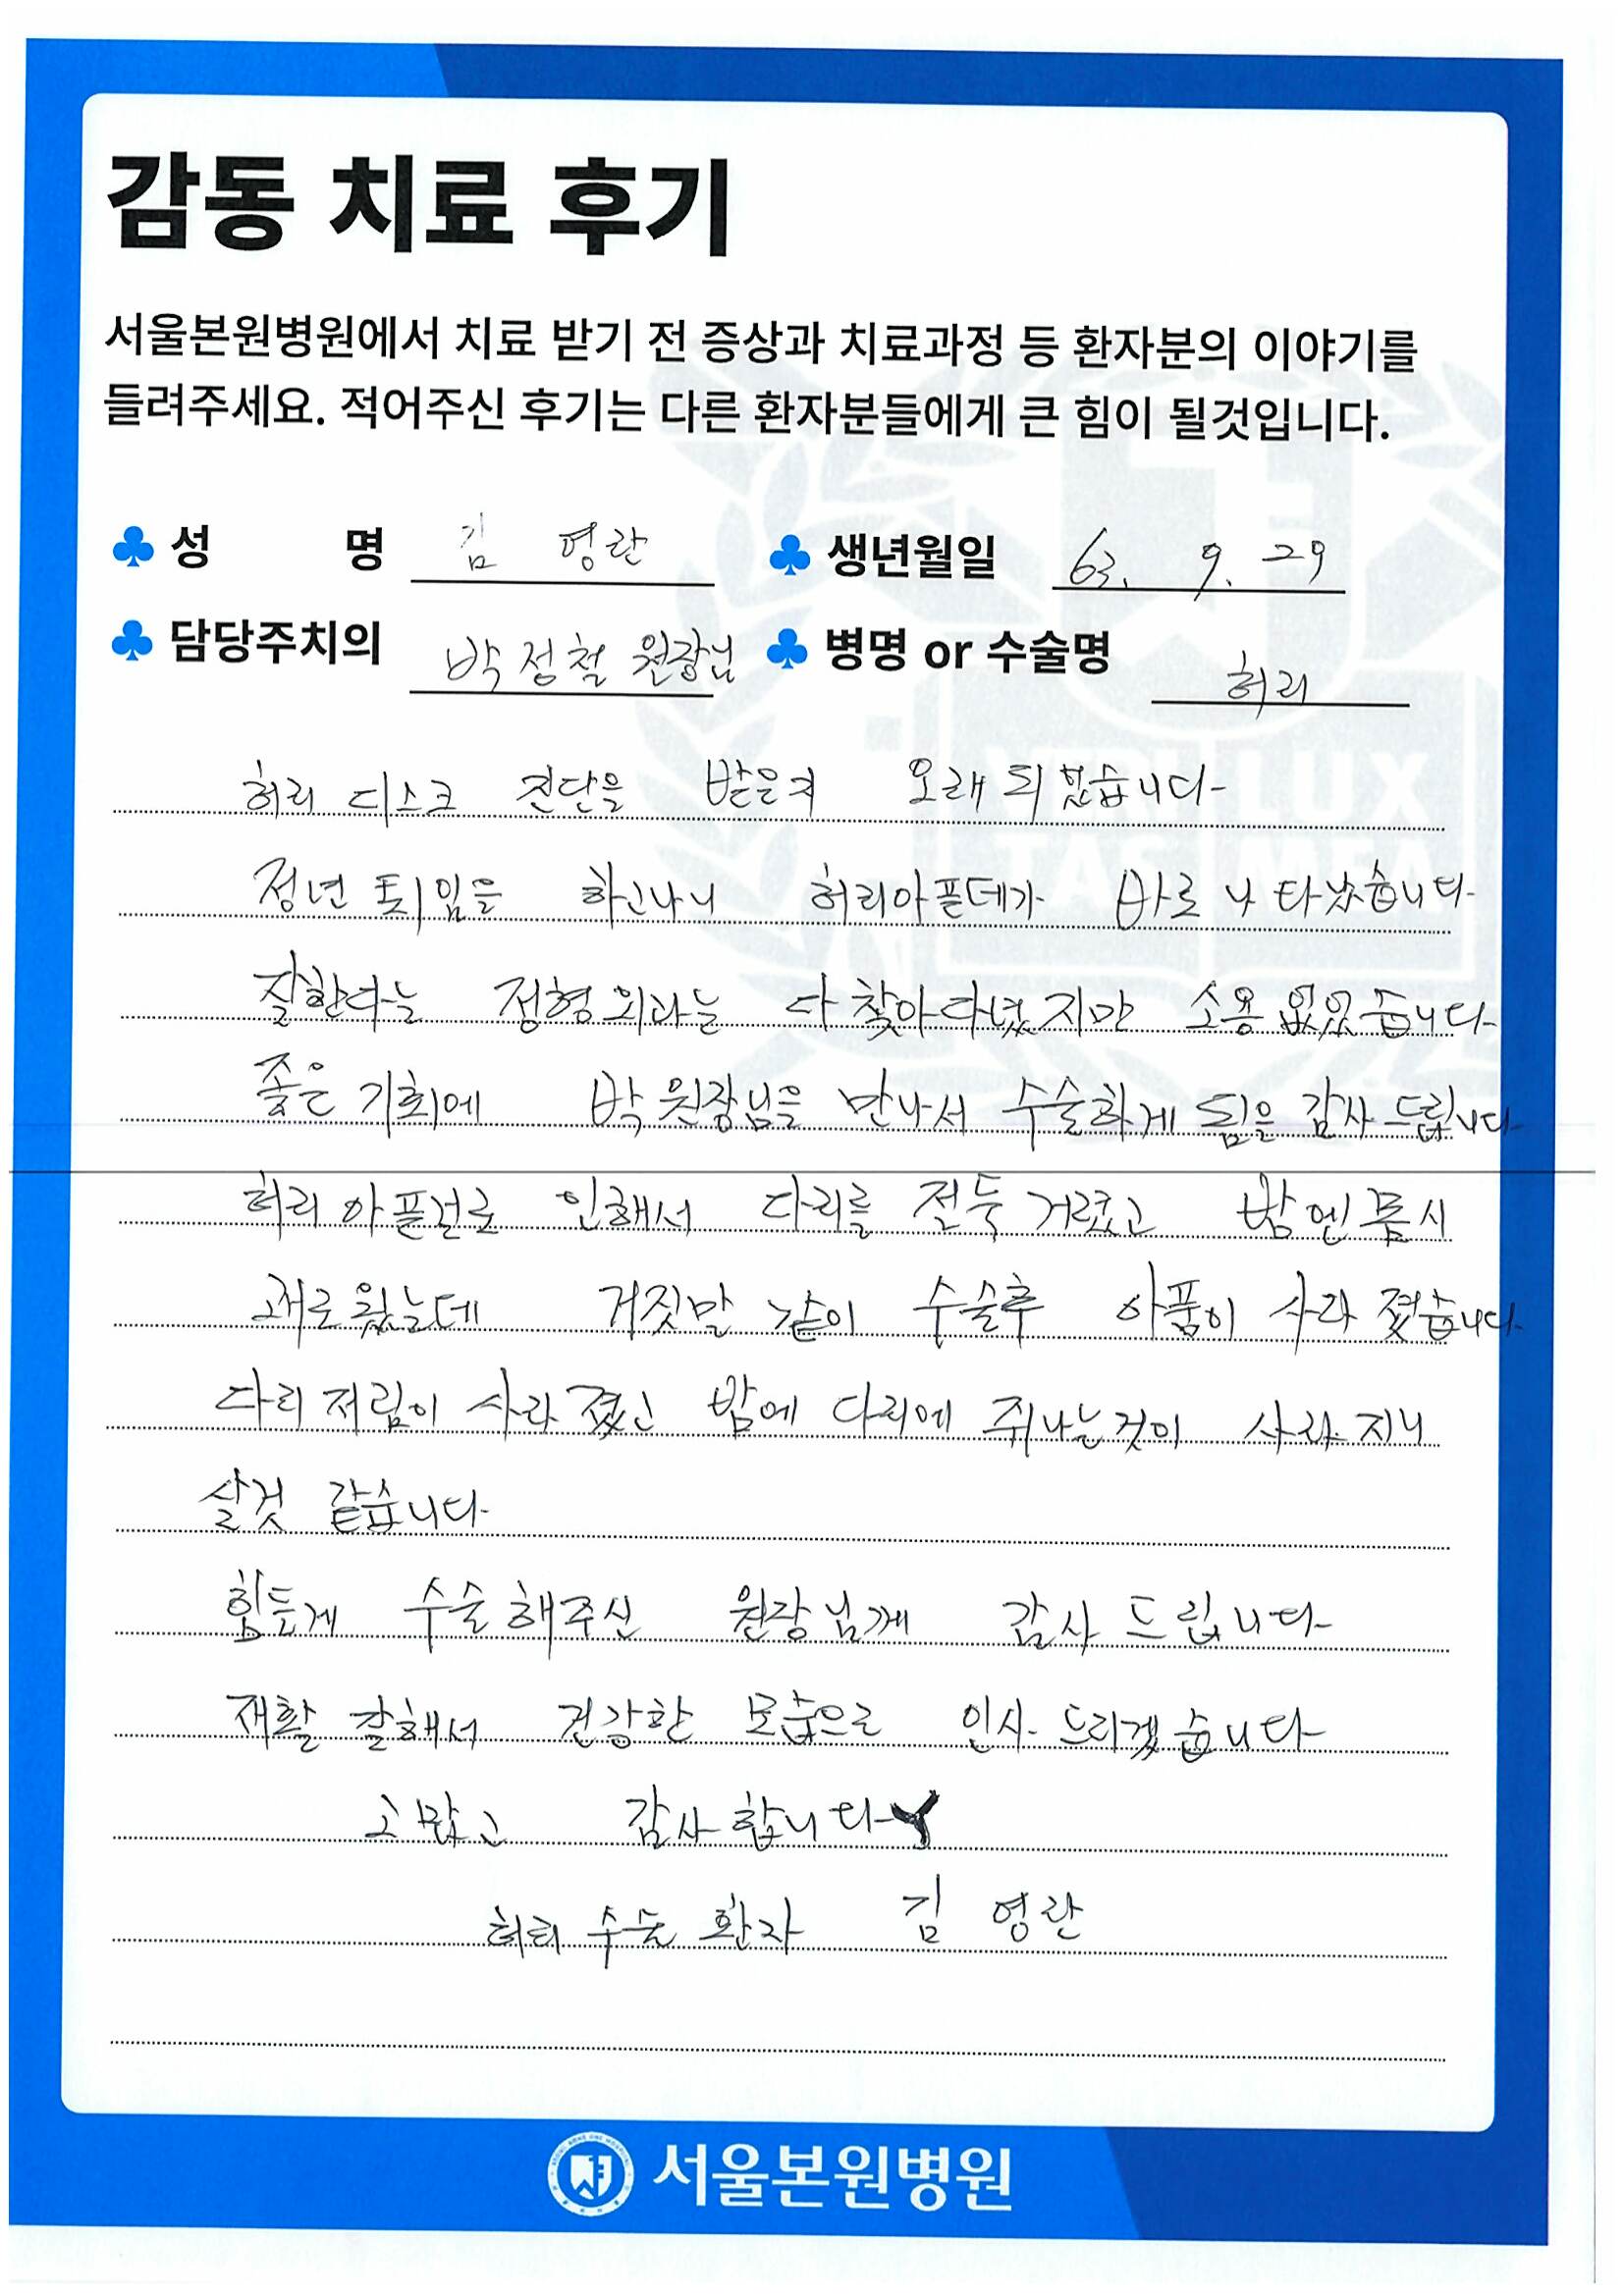 감동 치료 후기
서울본원병원에서 치료 받기 전 증상과 치료과정 등 환자분의 이야기를
들려주세요. 적어주신 후기는 다른 환자분들에게 큰 힘이 될것입니다.
♣ 성 명 김 영란 ♣ 생년월일 63. 9. 29
♣ 담당주치의 박정철 원장님 ♣ 병명 or 수술명 허리
허리 디스크 진단을 받은지 오래 되었습니다-
정년 퇴임을 하고나니 허리아픔데가 바로 나타났습니다-
잘한다는 정형외과는 다 찾아다녔지만 소용 없었습니다-
좋은 기회에 박원장님을 만나서 수술하게 됨을 감사 드립니다-
허리 아픔건로 인해서 다리를 절둑 거렸고 밤엔 몹시
괴로웠는데 거짓말 같이 수술후 아픔이 사라 졌습니다-
다리 저림이 사라 졌고 밤에 다리에 쥐나는것이 사라지니
살것 같습니다-
힘든게 수술해주신 원장님께 감사 드립니다-
재활 잘해서 건강한 모습으로 인사 드리겠습니다
고맙고 감사합니다-
허리 수술 환자 김 영란
VERI LUX
TAS MEA
서울본원병원